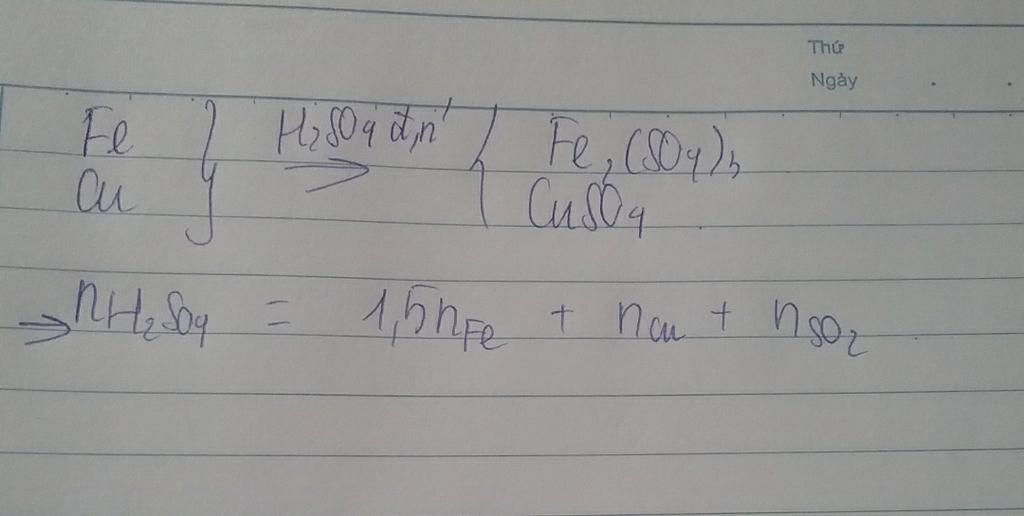 Thứ
Ngày
Fe } H₂SO₄ đ,n' { Fe₂(SO₄)₃
Cu → CuSO₄
⇒ nH₂SO₄ = 1,5nFe + nCu + nSO₂